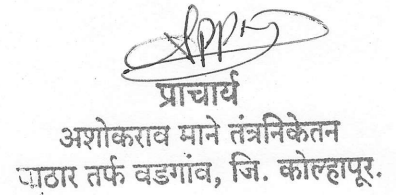 प्राचार्य
अशोकराव माने तंत्रनिकेतन
पाठार तर्फ वडगांव, जि. कोल्हापूर.